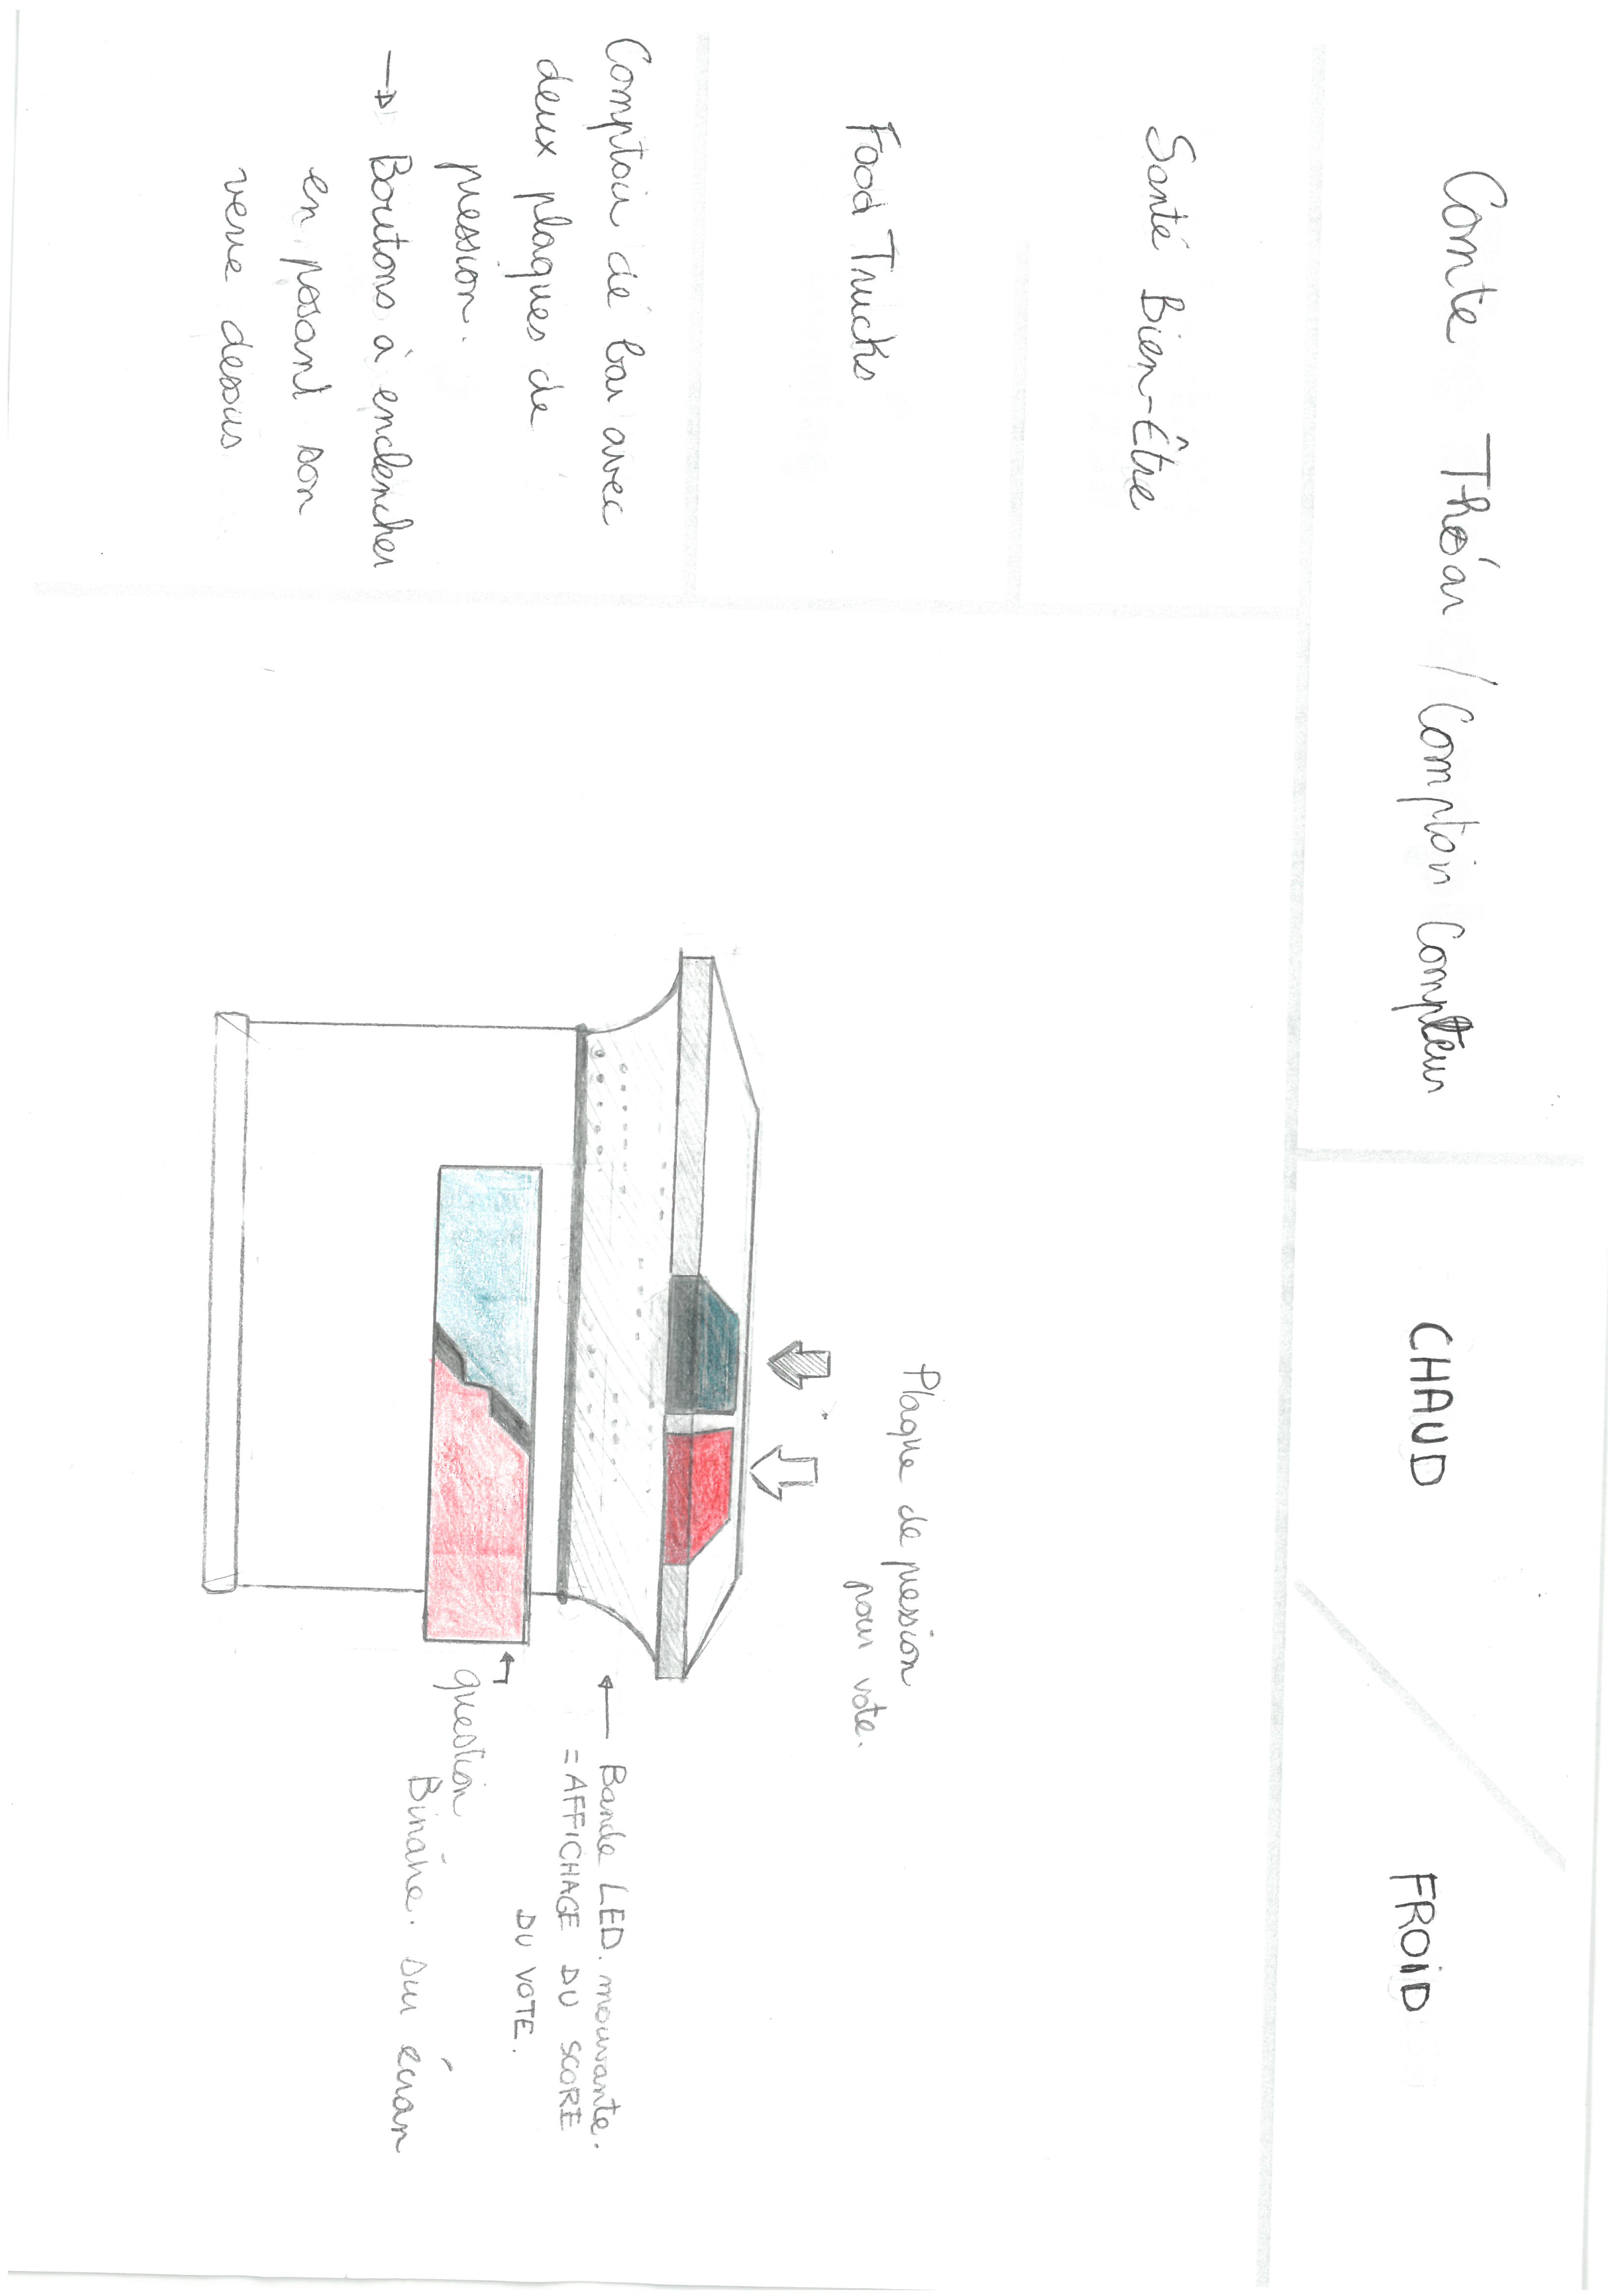 Comte Théâr / Comptoir Compteur
CHAUD
FROID
Santé Bien-Être
Food Trucks
Comptoir de bar avec
deux plaques de
pression.
→ Boutons à enclencher
en posant son
verre dessus
Plaque de pression
pour vote.
← Bande LED. mouvante.
= AFFICHAGE DU SCORE
DU VOTE.
question
Binaire. sur écran